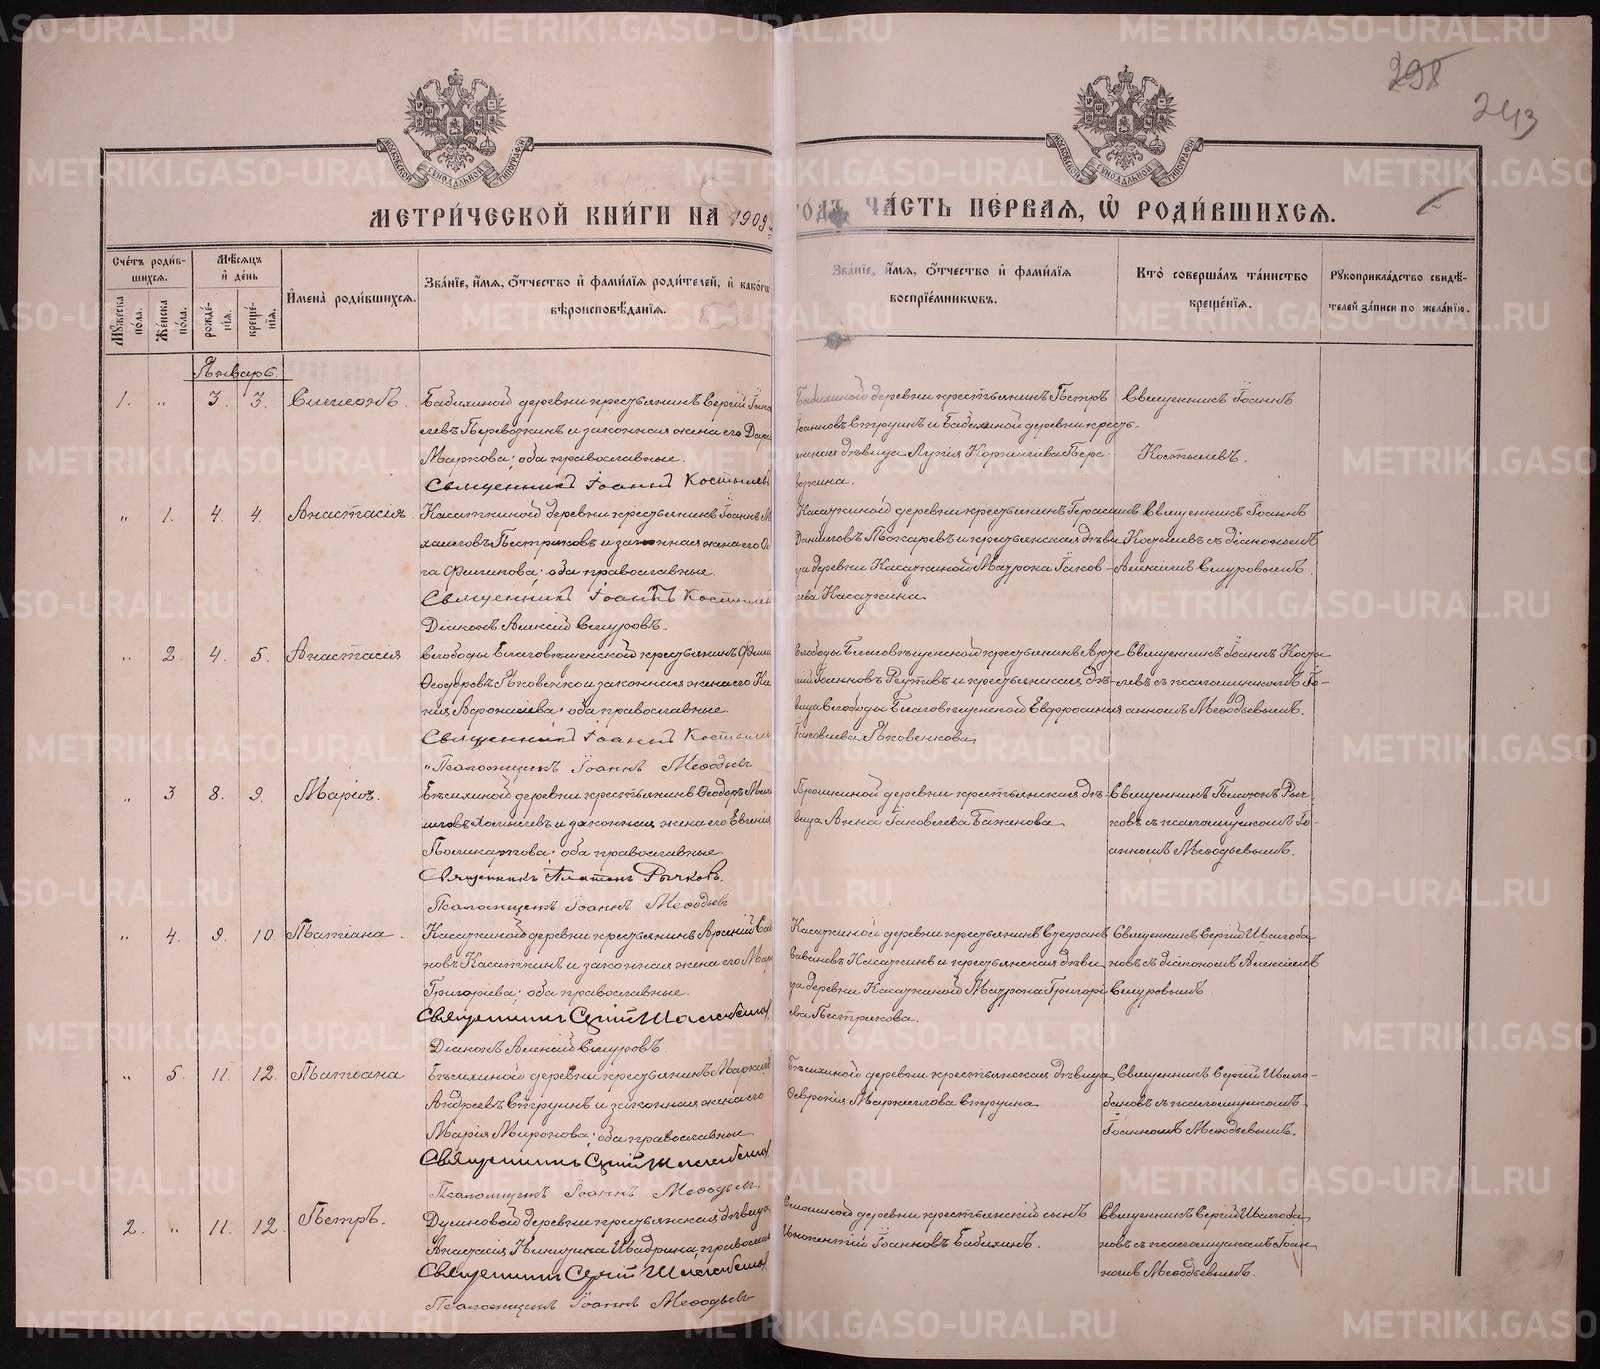 298
243
МОСКОВСКОЙ СѴНОДАЛЬНОЙ ТИПОГРАФІИ
МОСКОВСКОЙ СѴНОДАЛЬНОЙ ТИПОГРАФІИ
МЕТРИ́ЧЕСКОЙ КНИ́ГИ НА 1909
ГОДЪ, ЧА́СТЬ ПЕ́РВАЯ, Ѡ҆ РОДИ́ВШИХСЯ.
Сче́тъ роди́в-
шихся.
Мꙋ́жеска по́ла.
Же́нска по́ла.
Мѣ́сяцъ и҆ де́нь
рожде́-нія.
креще́-нія.
И҆мена̀ роди́вшихся.
Зва́ніе, и҆́мя, ѻ҆́тчество и҆ фами́лія роди́телей, и҆ како́гѡ
вѣроисповѣ́данія.
Зва́ніе, и҆́мя, ѻ҆́тчество и҆ фами́лія
воспріе́мникѡвъ.
Кто̀ соверша́лъ та́инство
креще́нія.
Рꙋкоприкла́дство свидѣ́-
телей за́писи по жела́нію.
Январь.
1. „ 3. 3. Симеонъ.
Бабихиной деревни крестьянинъ Сергій
левъ Перевозкинъ и законная жена его
Маркова; оба православные.
Священникъ Іоаннъ Костылевъ
Бабихиной деревни крестьянинъ Петръ
Іоанновъ Струинъ и Бабихиной деревни кресть-
янская дѣвица Лукія Корниліева Пере-
возкина.
Священникъ Іоаннъ
Костылевъ.
„ 1. 4. 4. Анастасія.
Касаткиной деревни крестьянинъ Іоаннъ Ми
хаиловъ Пестриковъ и законная жена его Ол
га Филипова; оба православные.
Священникъ Іоаннъ Костылевъ
Діаконъ Алексій Смуровъ.
Касаткиной деревни крестьянинъ Герасимъ
Даниловъ Токаревъ и крестьянская дѣви
ца деревни Касаткиной Маѵрона Іаков-
лева Касаткина
Священникъ Іоаннъ
Костылевъ съ діакономъ
Алексіемъ Смуровымъ.
„ 2. 4. 5. Анастасія
Слободы Благовѣщенской крестьянинъ
Ѳеодоровъ Яковенко и законная жена его
нія Аѳонасіева; оба православные.
Священникъ Іоаннъ Костылевъ
Псаломщикъ Іоаннъ Меѳодьевъ
Слободы Благовѣщенской крестьянинъ
Іоанновъ Реутивъ и крестьянская дѣ-
вица Слободы Благовѣщенской Евфросинія
Іаковлева Яковенкова
Священникъ Іоаннъ Косты
левъ съ псаломщикомъ Іо-
анномъ Меѳодьевымъ.
„ 3 8. 9. Марія.
деревни крестьянинъ Ѳеодоръ
и законная жена его Евгенія
Поликарпова; оба православные.
Священникъ Платонъ Рычковъ.
Псаломщикъ Іоаннъ Меѳодьевъ
Ерошкиной деревни крестьянская дѣ-
вица Анна Іаковлева Баженова
Священникъ Платонъ Рыч-
ковъ съ псаломщикомъ Іо-
анномъ Меѳодьевымъ.
„ 4. 9. 10. Татіана.
Касаткиной деревни крестьянинъ Арсеній Сав
новъ Касаткинъ и законная жена его
Григорьева; оба православные.
Священникъ Сергій Шалабановъ
Діаконъ Алексій Смуровъ.
Касаткиной деревни крестьянинъ Стефанъ
Саввиновъ Касаткинъ и крестьянская дѣви
ца деревни Касаткиной Маѵрона Григорі
ева Пестрикова.
Священникъ Сергій Шалаба-
новъ съ діакономъ Алексіемъ
Смуровымъ.
„ 5. 11. 12. Татіана
деревни крестьянинъ
Андреевъ Струинъ и законная жена его
Марія Миронова; оба православные.
Священникъ Сергій Шалабановъ
Псаломщикъ Іоаннъ Меѳодьевъ
деревни крестьянская дѣвица
Ѳевронія Маркеллова Струина
Священникъ Сергій Шала-
бановъ съ псаломщикомъ
Іоанномъ Меѳодьевымъ.
2. „ 11. 12. Петръ.
деревни крестьянская дѣвица
Анастасія православная
Священникъ Сергій Шалабановъ
Псаломщикъ Іоаннъ Меѳодьевъ
деревни крестьянскій сынъ
Инокентій Іоанновъ Бабихинъ.
Священникъ Сергій Шалаба-
новъ съ псаломщикомъ Іоан-
номъ Меѳодьевымъ.
METRIKI.GASO-URAL.RU